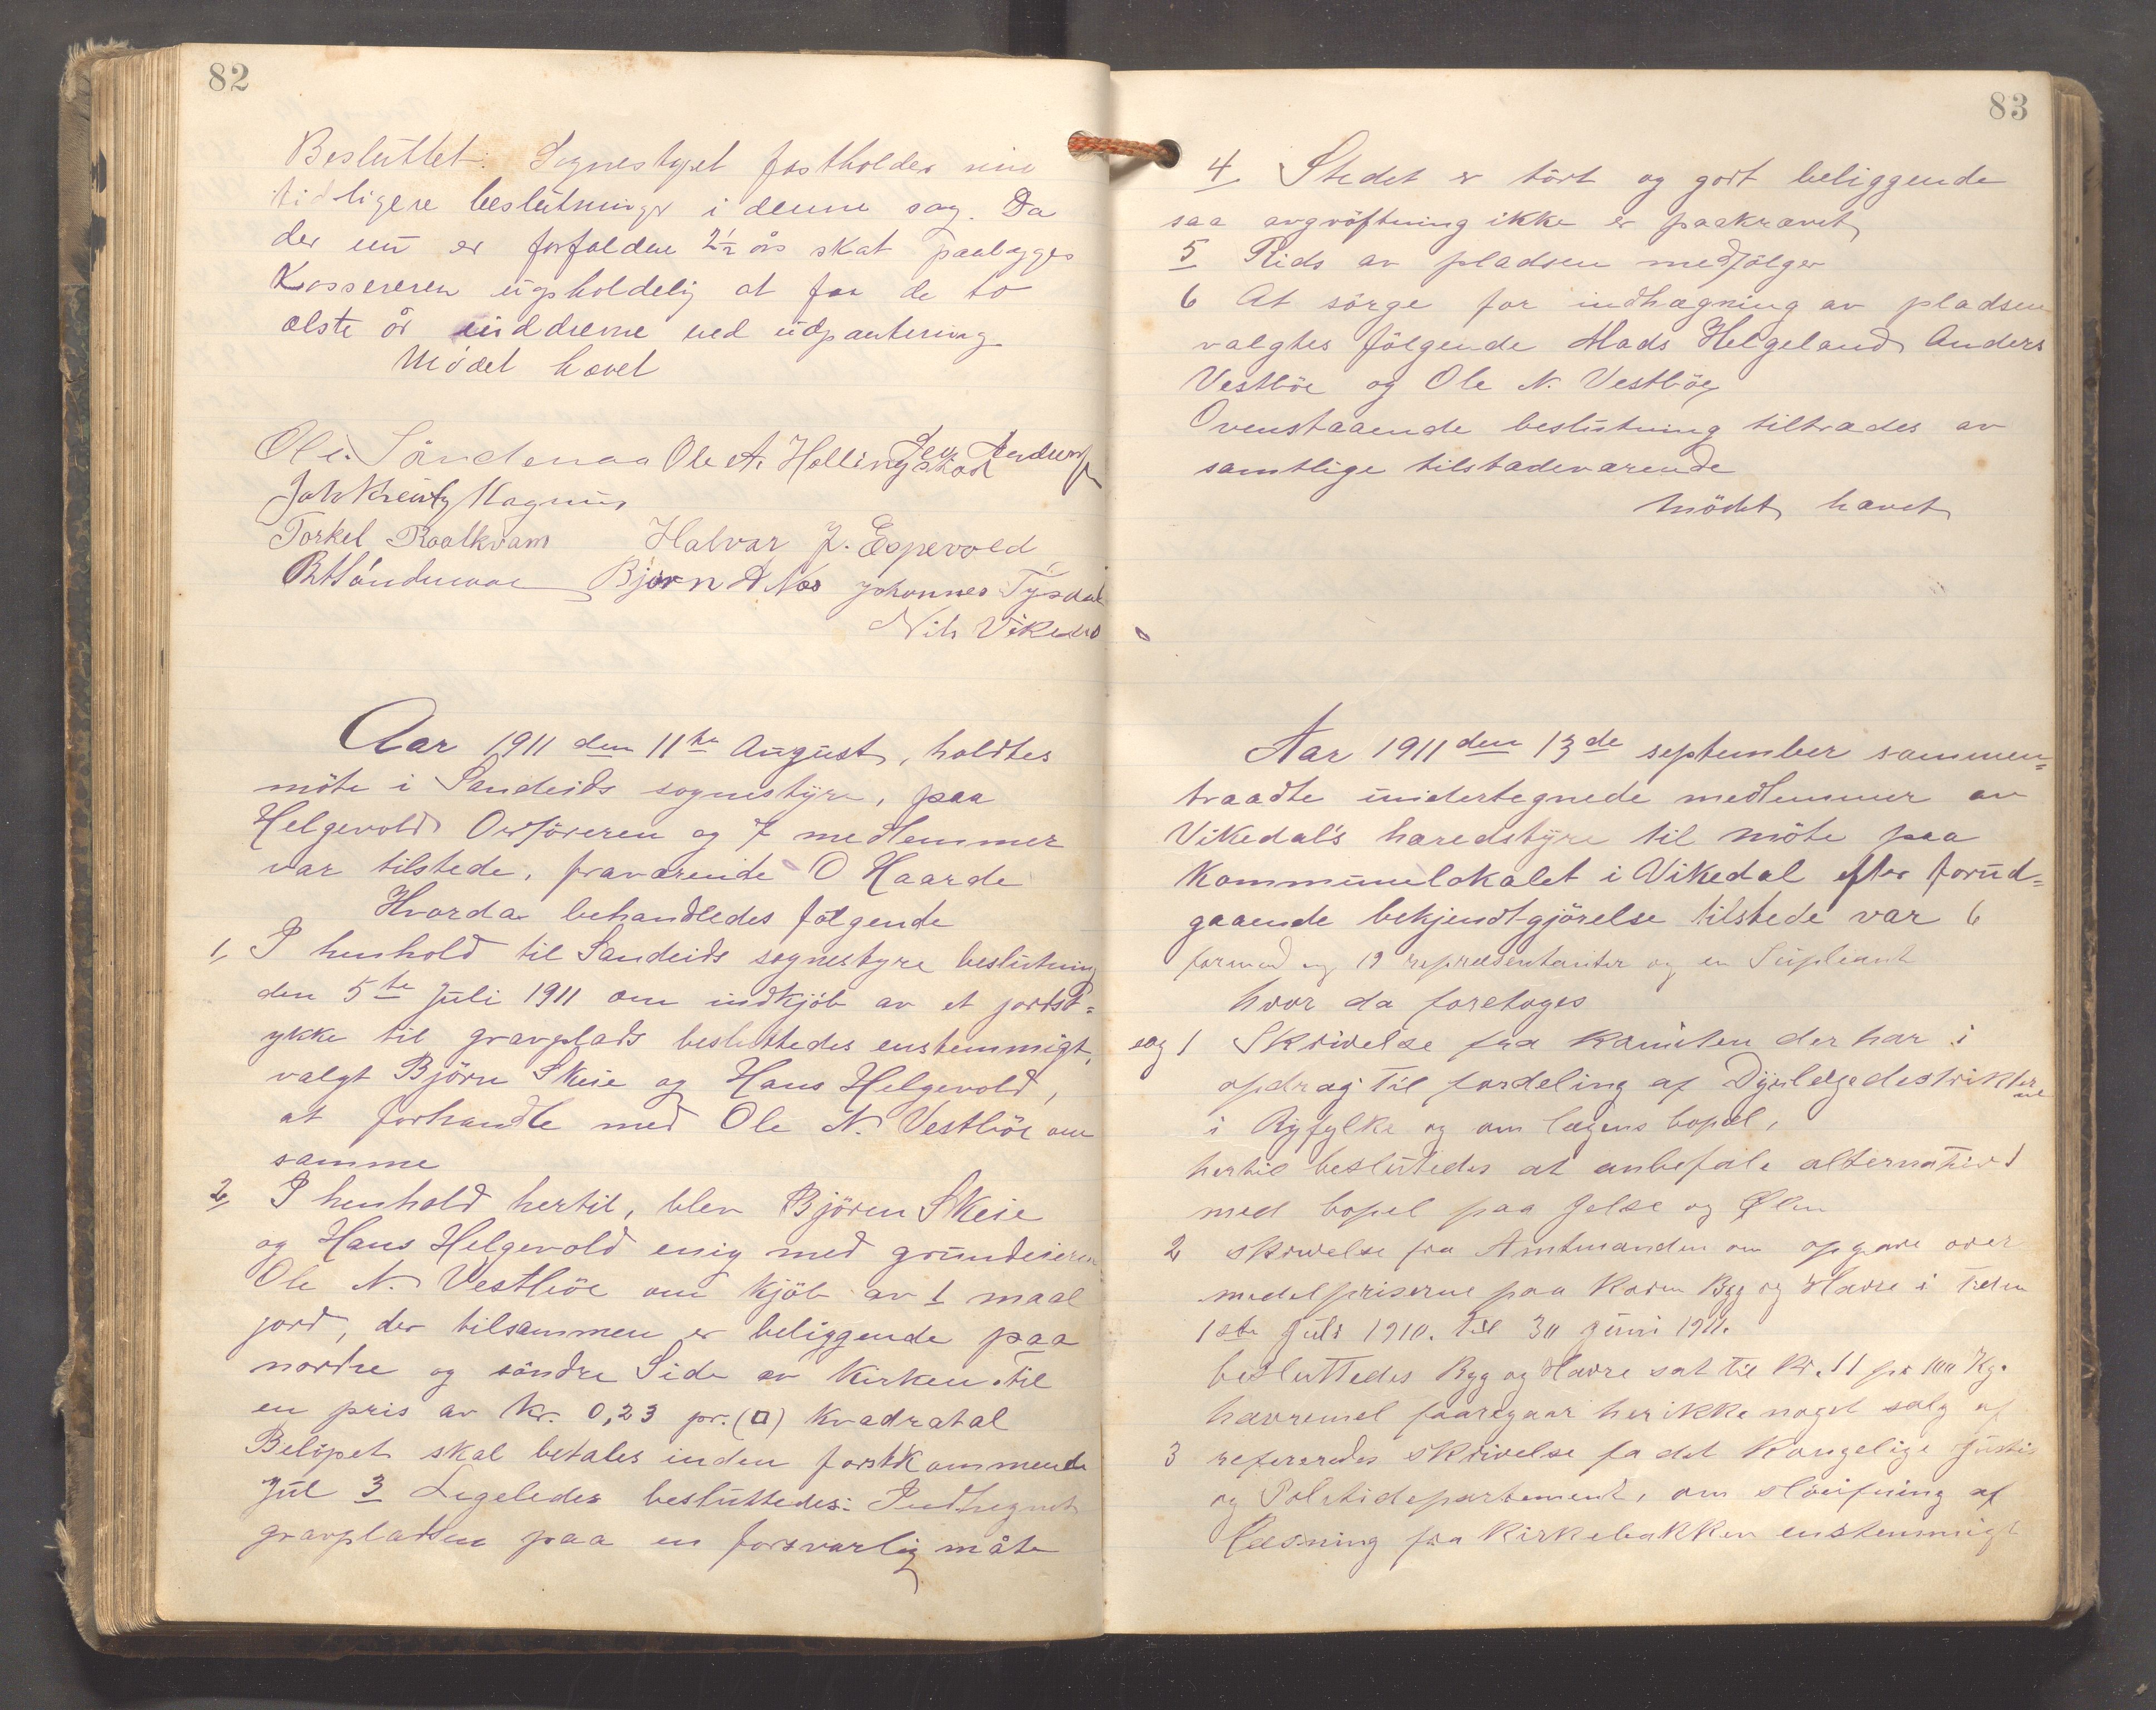 82
Besluttet: Sognestyret fastholder sine
tidligere beslutninger i denne sag. Da
der nu er forfalden 2½ års skat paalægges
Kassereren uopholdelig at faa de to
ælste år inddrevne ved udpantering
Mødet hævet
Ole Søndenaa Ole A. Hellingstad
Joh Kreutz Magnus
Torkel Raalkvam Halvar J. Espevold
Bjørn A Næs Johannes Tysdal
Nils Vikedal
Aar 1911 den 11te August, holdtes
møte i Sandeids sognestyre, paa
Helgevold Ordføreren og 7 medlemmer
var tilstede, fraværende O Haarde
Hvorda behandledes følgende
1, I henhold til Sandeids sognestyre beslutning
den 5te Juli 1911 om indkjøb av et jordst=
ykke til gravplads besluttedes enstemmigt,
valgt Bjørn Skeie og Hans Helgevold,
at forhandle med Ole N. Vestbøe om
samme
2, I henhold hertil, blev Bjørn Skeie
og Hans Helgevold enig med grundeieren
Ole N. Vestbøe om kjøb av 1 maal
jord, der tilsammen er beliggende paa
nordre og søndre Side av Kirken til
en pris av Kr. 0,23 pr. (□) Kvadratal
Beløpet skal betales inden førstkommende
Jul 3 Ligeledes besluttedes: Indhegnet
gravpladsen paa en forsvarlig måte
83
4 Stedet er tørt og godt beliggende
saa avgrøftning ikke er paakrævet,
5 Rids av pladsen medfølger
6 At sørge for indhægning av pladsen
valgtes følgende Mads Helgeland Anders
Vestbøe og Ole N. Vestbøe,
Ovenstaaende beslutning tiltrædes av
samtlige tilstedeværende
Mødet, hævet,
Aar 1911 den 13de september sammen=
traadte undertegnede medlemmer av
Vikedal's heredstyre til møte paa
Kommunelokalet i Vikedal efter forud=
gaaende bekjendtgjørelse tilstede var 6
formænd og 19 representanter og en Supleant
hvor da foretoges
sag 1 Skrivelse fra Komiten der har i
opdrag til fordeling af Dyrlægedestrikterne
i Ryfylke og om lægens bopæl,
hertil beslutedes at anbefale alternativ 1
med bopel paa Jelse og Ølen
2 skrivelse fra Amtmanden om opgave over
medelpriserne paa Korn Byg og Havre i Tiden
1ste Juli 1910. Til 30 Juni 1911.
besluttedes Byg og Havre sat til Kr. 11 pr 100 Kg.
havremel foaregaar her ikke noget salg af
3 refereredes skrivelse fa det Kongelige Justis
og Politidepartement, om sløifning af
læsning fra Kirkebakken enstemmigt